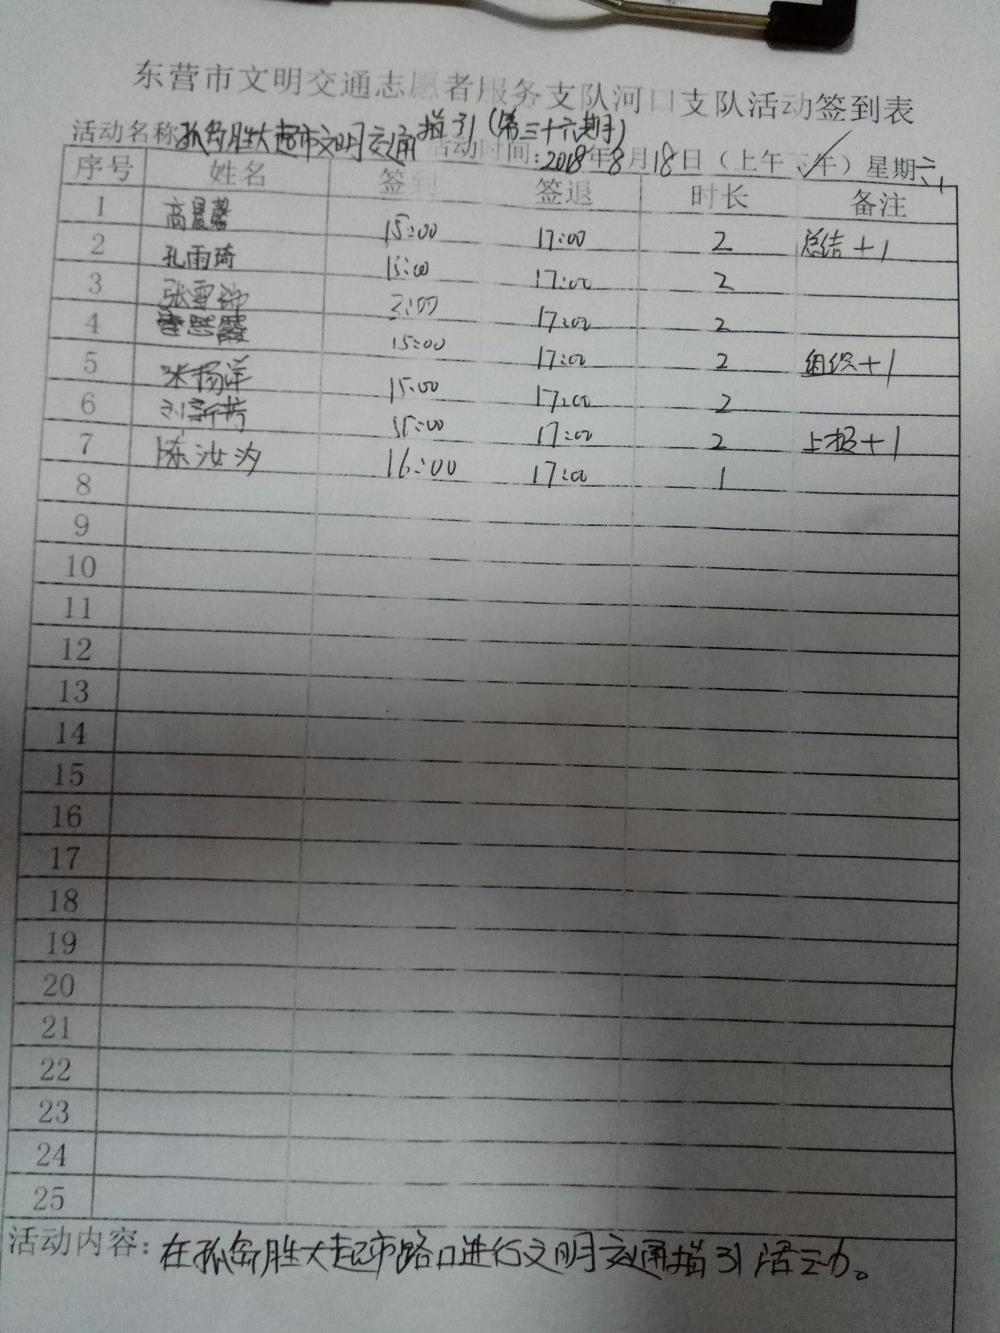 东营市文明交通志愿者服务支队河口支队活动签到表
活动名称:孤岛胜大超市文明交通指引(第三十六期) 活动时间:2018年8月18日(上午下午√)星期六
序号 姓名 签到 签退 时长 备注
1 高晨馨 15:00 17:00 2 总结+1
2 孔雨琦 15:00 17:00 2
3 张雪 3:00 17:00 2
4 15:00 17:00 2 组织+1
5 张杨洋 15:00 17:00 2
6 刘新 15:00 17:00 2 上报+1
7 陈汝汐 16:00 17:00 1
8
9
10
11
12
13
14
15
16
17
18
19
20
21
22
23
24
25
活动内容:在孤岛胜大超市路口进行文明交通指引活动。